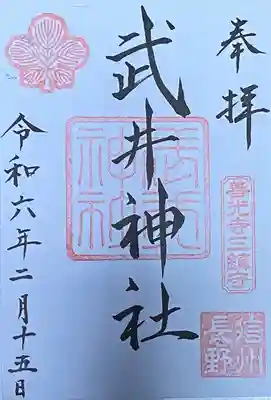 奉拝
善光寺三鎮守
信州
長野
武井神社
武井
神社
令和六年二月十五日